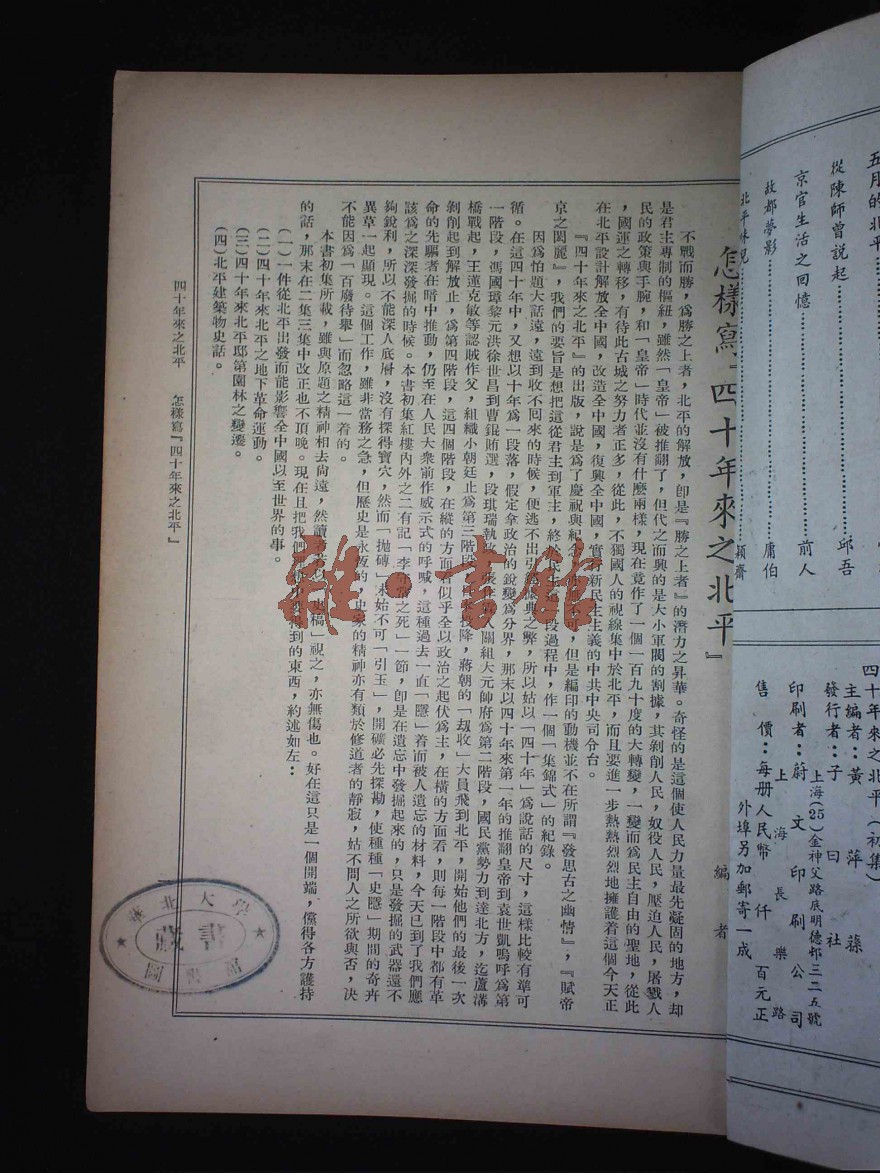 五月的北平
從陳師曾說起………………邱吾
京官生活之回憶………………前人
故都夢影………………庸伯
四十年來之北平（初集）
主編者：黃萍蓀
發行者：子曰社
上海(25)金神父路底明德邨三二五號
印刷者：蔚文印刷公司
上海長樂路
售價：每册人民幣仟百元正
外埠另加郵寄一成
怎樣寫『四十年來之北平』
編者
不戰而勝，爲勝之上者，北平的解放，卽是『勝之上者』的潛力之昇華。奇怪的是這個使人民力量最先凝固的地方，却
是君主專制的樞紐，雖然「皇帝」被推翻了，但代之而興的是大小軍閥的割據，其剝削人民，奴役人民，壓迫人民，屠戮人
民的政策與手腕，和「皇帝」時代並沒有什麼兩樣，現在竟作了一個一百九十度的大轉變，一變而爲民主自由的聖地，從此
，國運之轉移，有待此古城之努力者正多，從此，不獨國人的視線集中於北平，而且要進一步熱熱烈烈地擁護着這個今天正
在北平設計解放全中國，改造全中國，復興全中國，實新民主主義的中共中央司令台。
『四十年來之北平』的出版，說是爲了慶祝與紀念，但是編印的動機並不在所謂『發思古之幽情』，『賦帝
京之閎麗』，我們的要旨是想把這從君主到軍主，終民主段過程中，作一個「集錦式」的紀錄。
因爲怕題大話遠，遠到收不回來的時候，便逃不出引典之弊，所以姑以「四十年」爲說話的尺寸，這樣比較有準可
循。在這四十年中，又想以十年爲一段落，假定拿政治的銳變爲分界，那末以四十年來第一年的推翻皇帝到袁世凱嗚呼爲第
一階段，馮國璋黎元洪徐世昌到曹錕賄選，段琪瑞執政張作入關組大元帥府爲第二階段，國民黨勢力到達北方，迄蘆溝
橋戰起，王蓮克敏等認賊作父，組織小朝廷止爲第三階段，投降，蔣朝的「刼收」大員飛到北平，開始他們的最後一次
剝削起到解放止，爲第四階段，這四個階段，在縱的方面似乎全以政治之起伏爲主，在橫的方面看，則每一階段中都有革
命的先驅者在暗中推動，仍至在人民大衆前作威示式的呼喊，這種過去一直「隱」着而被人遺忘的材料，今天已到了我們應
該爲之深深發掘的時候。本書初集紅樓內外之二有記「李之死」一節，卽是在遺忘中發掘起來的，只是發掘的武器還不
夠銳利，所以不能深入底層，沒有探得寶穴，然而「拋磚」未始不可「引玉」，開礦必先探勘，使種種「史隱」期間的奇卉
異草一起顯現。這個工作，雖非當務之急，但歷史是永恆的，史家的精神亦有類於修道者的靜寂，姑不問人之所欲與否，決
不能因爲「百廢待舉」而忽略這一着的。
本書初集所載，雖與原題之精神相去尙遠，然讀者若以「史稿」視之，亦無傷也。好在這只是一個開端，儻得各方護持
的話，那末在二集三集中改正也不頂晚。現在且把我們要得到的東西，約述如左：
（一）一件從北平出發而能影響全中國以至世界的事。
（二）四十年來北平之地下革命運動。
（三）四十年來北平邸第園林之變遷。
（四）北平建築物史話。
四十年來之北平　怎樣寫『四十年來之北平』
一
華北大學
圖書館
藏書
雅·書館